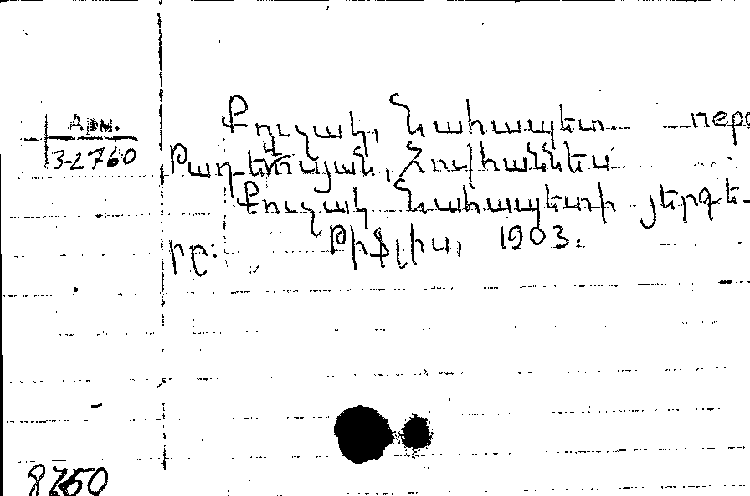 Арм.
3-2760
Քուչակ, Նահապետ. пер
Թադևոսյան, Հովհաննես
Քուչակ Նահապետի յերգե-
րը։ Թիֆլիս, 1903.
8750